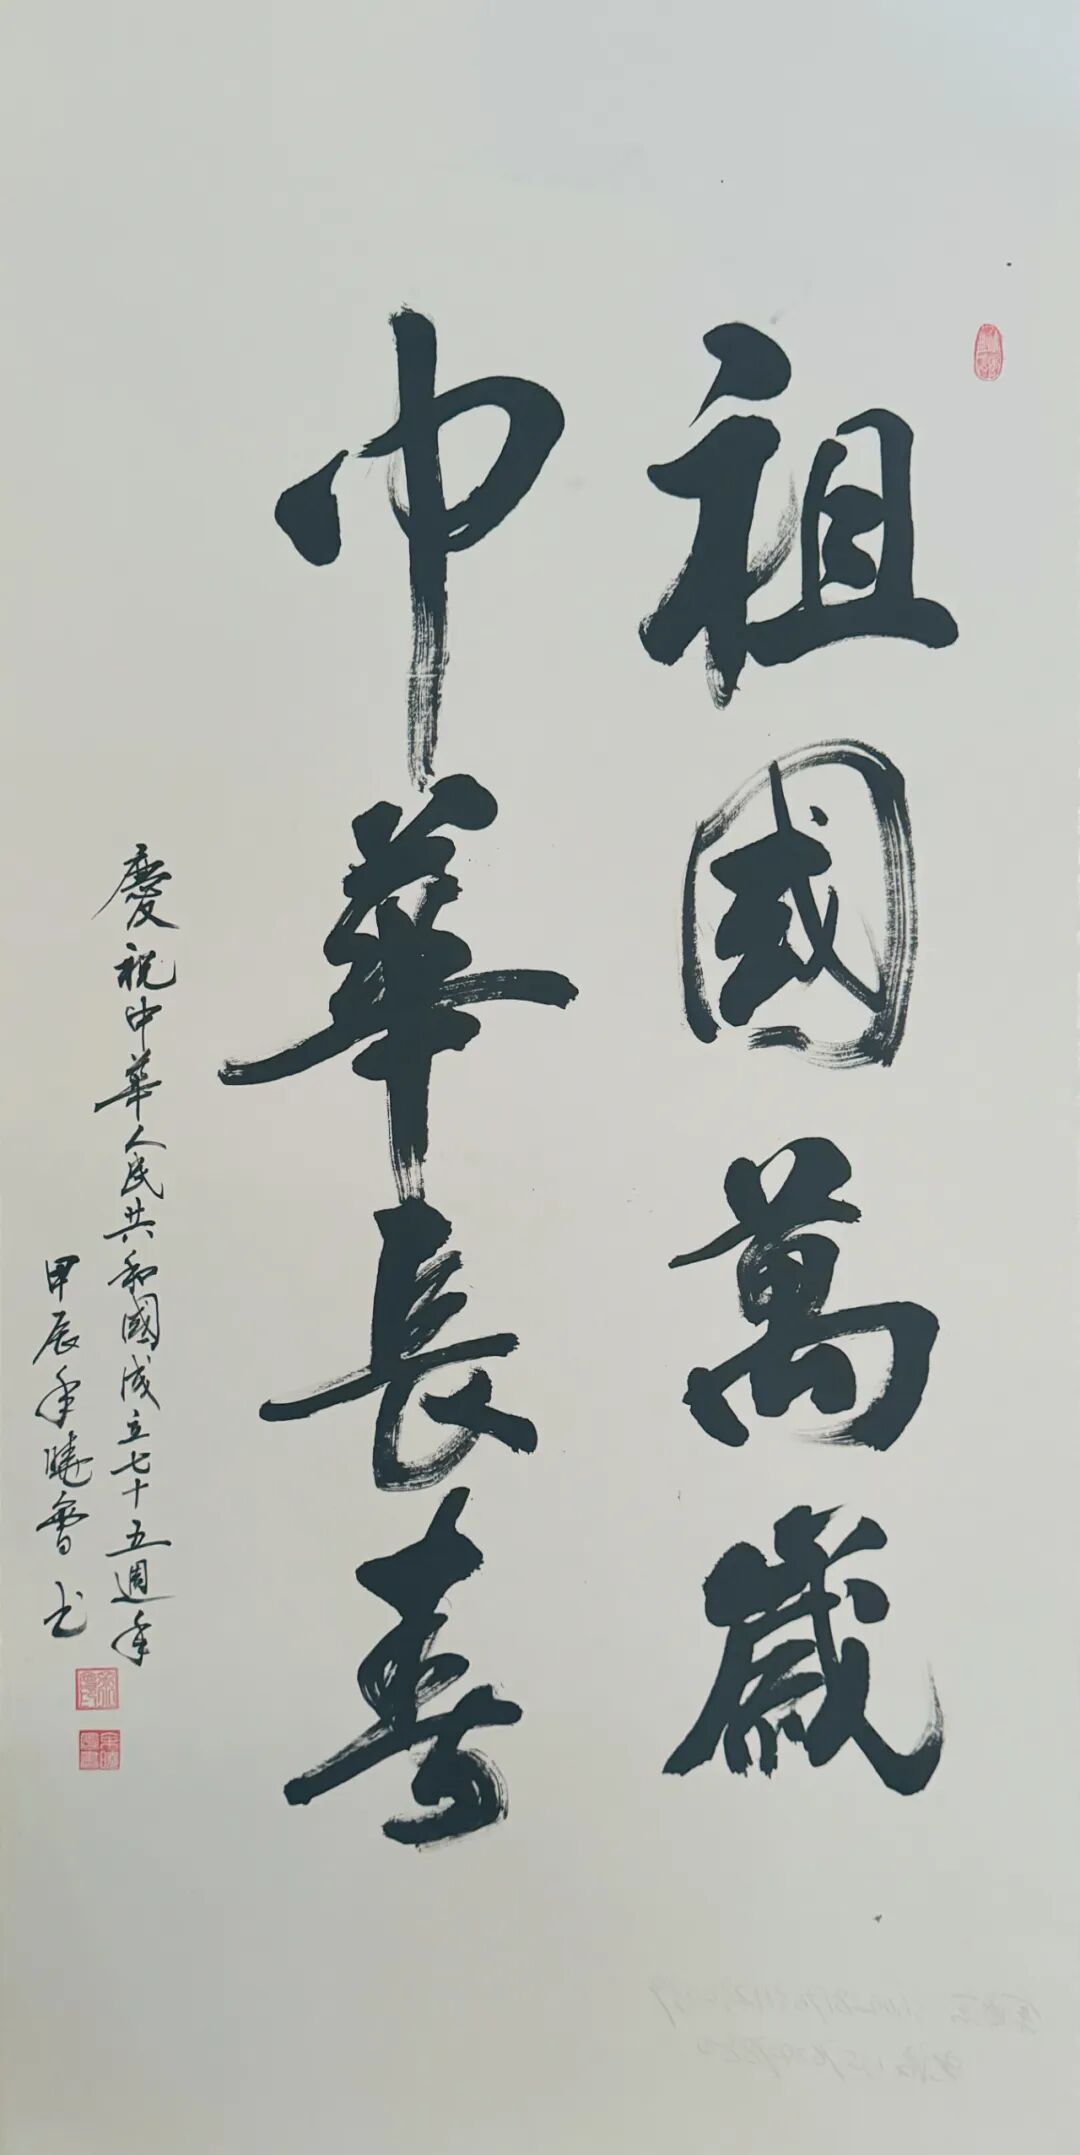 祖國萬歲
中華長春
慶祝中華人民共和國成立七十五週年
甲辰年曉魯书